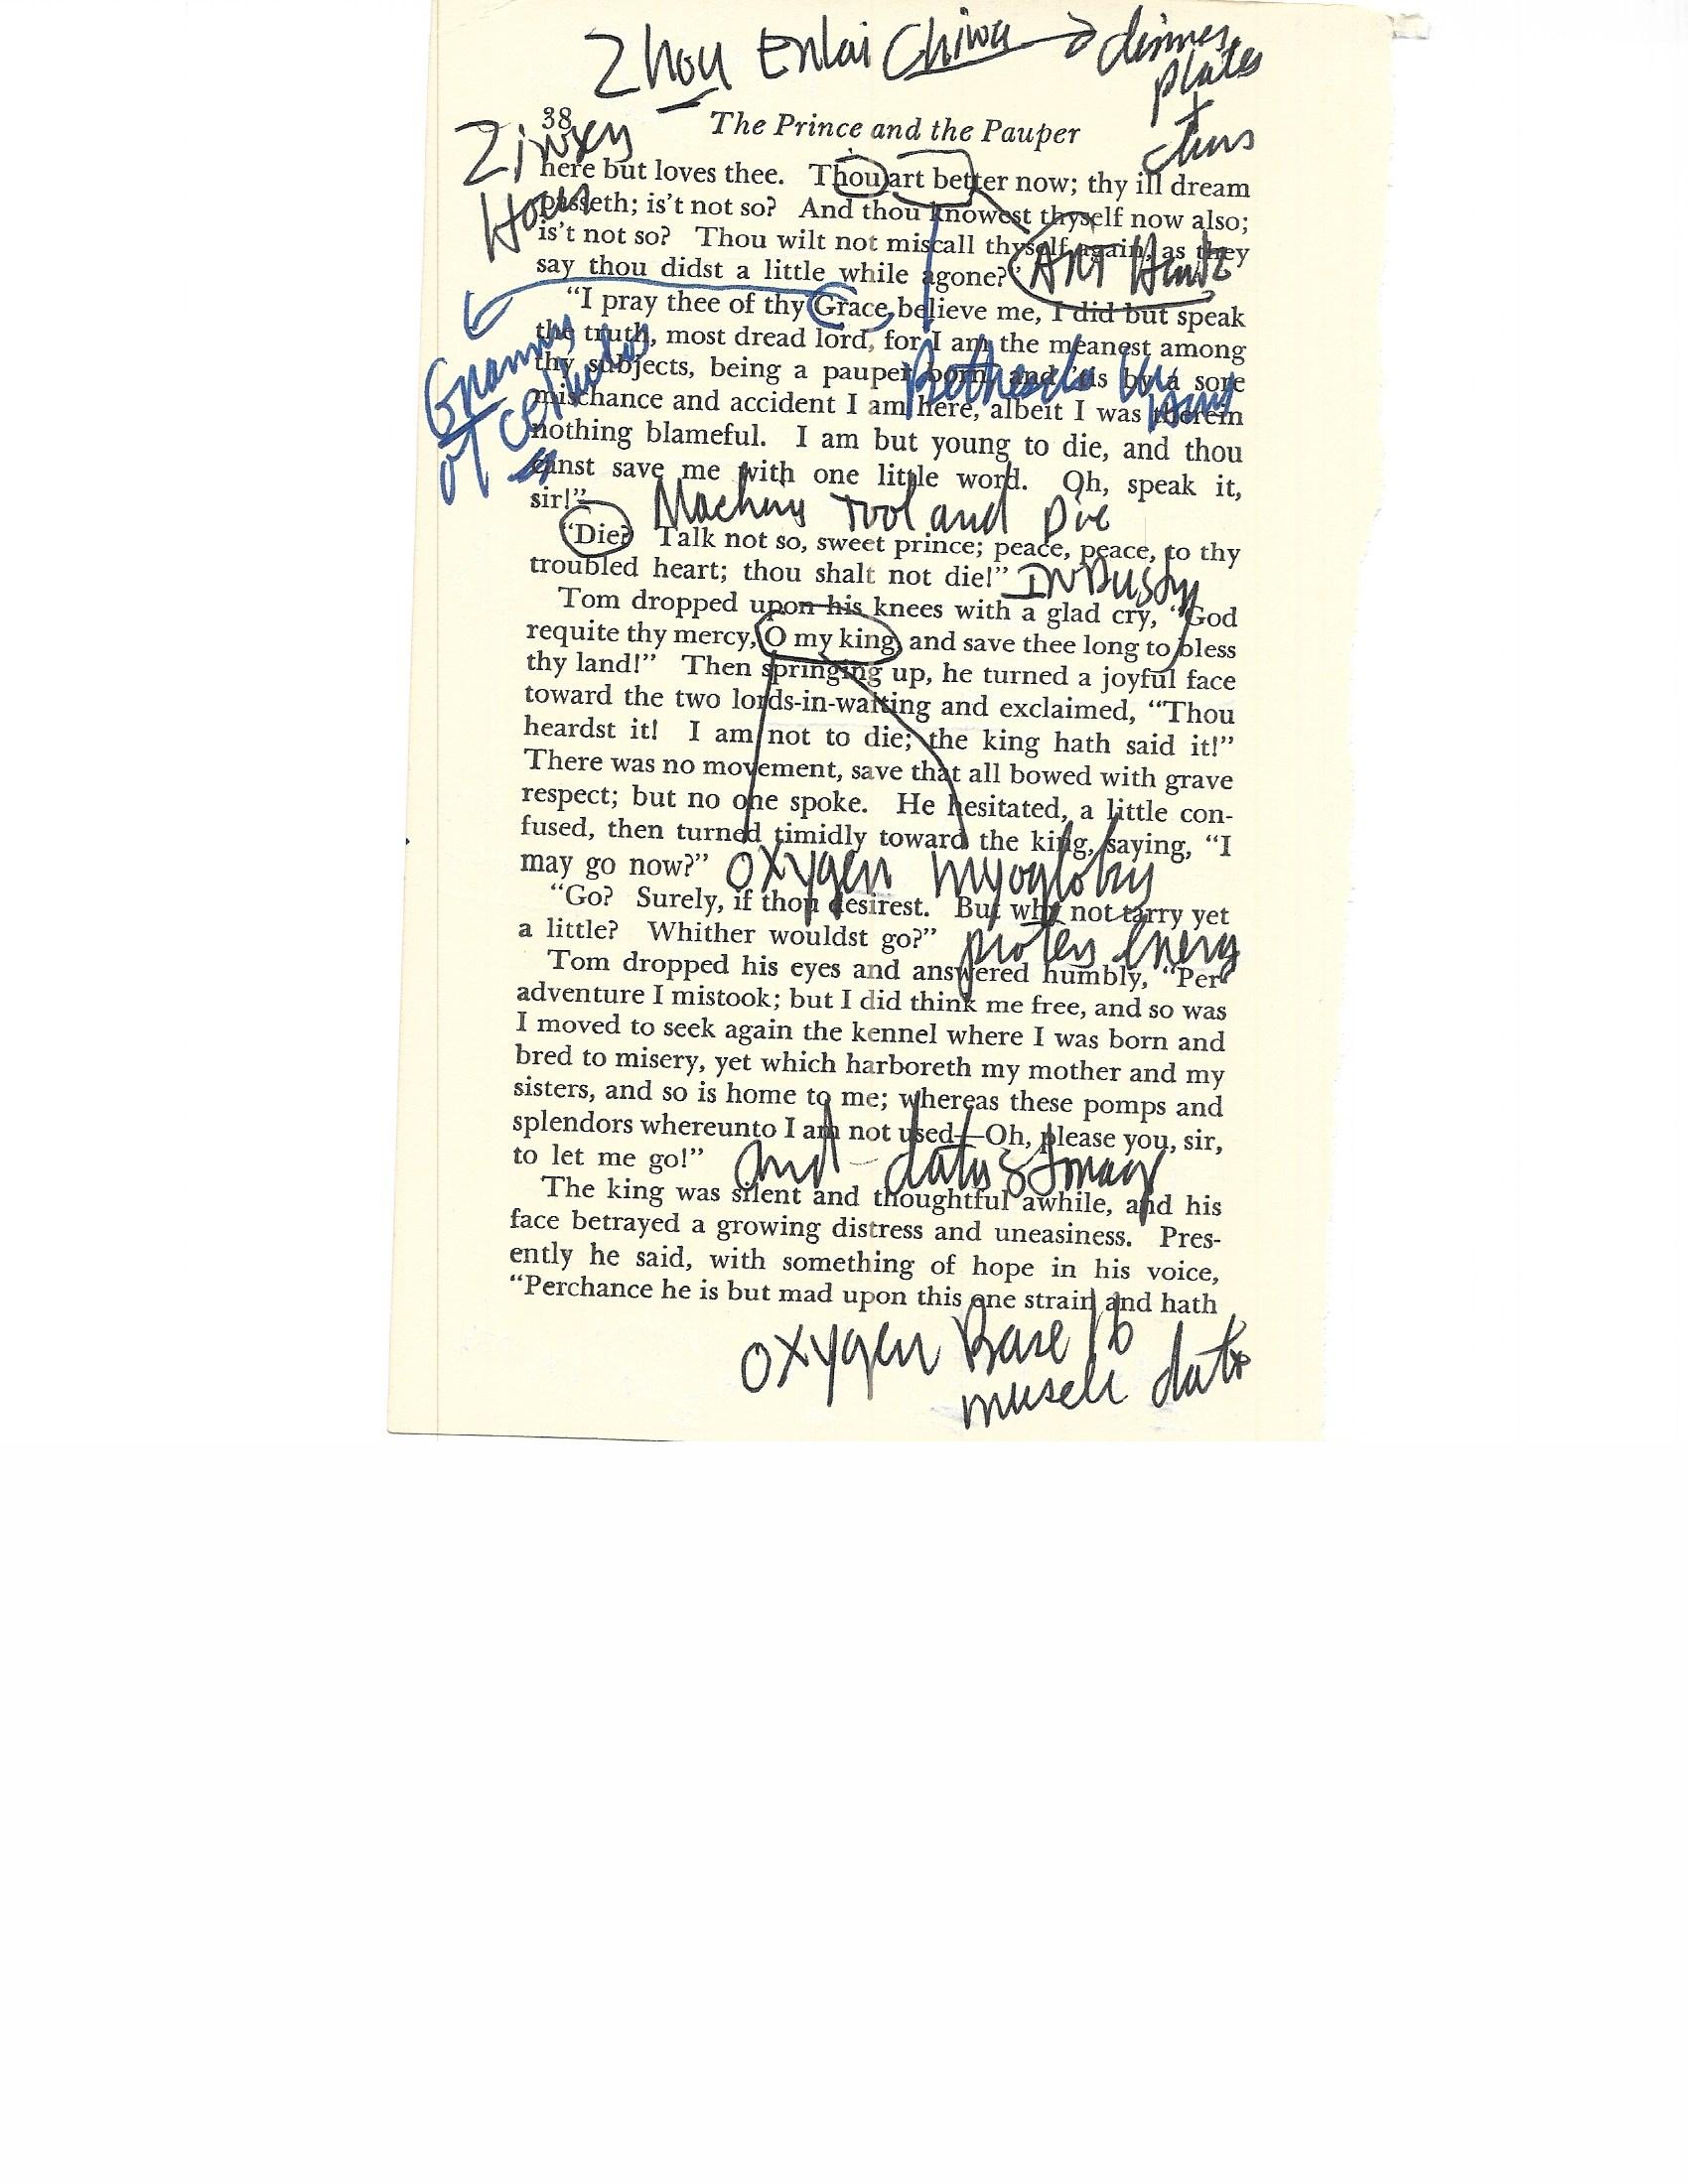 Zhou Enlai China
plates
38
The Prince and the Pauper
here but loves thee. Thou art better now; thy ill dream
passeth; is't not so? And thou knowest thyself now also;
is't not so? Thou wilt not miscall thyself again, as they
say thou didst a little while agone?"
ART
"I pray thee of thy Grace believe me, I did but speak
the truth, most dread lord, for I am the meanest among
thy subjects, being a pauper born, and 'tis by a sore
mischance and accident I am here, albeit I was therein
nothing blameful. I am but young to die, and thou
canst save me with one little word. Oh, speak it,
sir!"
Bethesda
of
Machine Tool and Die
"Die? Talk not so, sweet prince; peace, peace, to thy
troubled heart; thou shalt not die!"
Tom dropped upon his knees with a glad cry, "God
requite thy mercy, O my king, and save thee long to bless
thy land!" Then springing up, he turned a joyful face
toward the two lords-in-waiting and exclaimed, "Thou
heardst it! I am not to die; the king hath said it!"
There was no movement, save that all bowed with grave
respect; but no one spoke. He hesitated, a little con-
fused, then turned timidly toward the king, saying, "I
may go now?"
oxygen
"Go? Surely, if thou desirest. But why not tarry yet
a little? Whither wouldst go?"
energy
Tom dropped his eyes and answered humbly, "Per-
adventure I mistook; but I did think me free, and so was
I moved to seek again the kennel where I was born and
bred to misery, yet which harboreth my mother and my
sisters, and so is home to me; whereas these pomps and
splendors whereunto I am not used—Oh, please you, sir,
to let me go!"
and data
The king was silent and thoughtful awhile, and his
face betrayed a growing distress and uneasiness. Pres-
ently he said, with something of hope in his voice,
"Perchance he is but mad upon this one strain and hath
oxygen Base 16
data